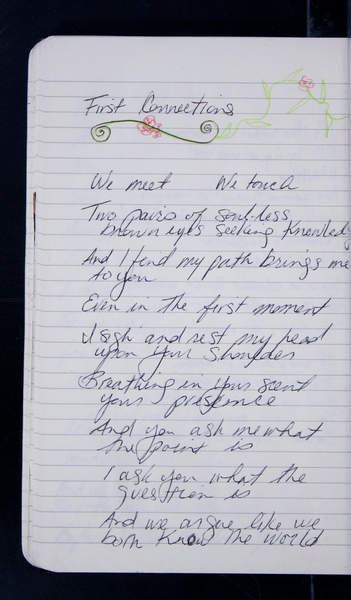 First Connections
We meet We touch
Two pairs of soul-less
brown eyes seeking Knowledg
And I find my path brings me
to you
Even in the first moment
I sigh and rest my head
upon your shoulder
Breathing in your scent
your presence
And you ask me what
the point is
I ask you what the
question is
And we argue like we
both know the world